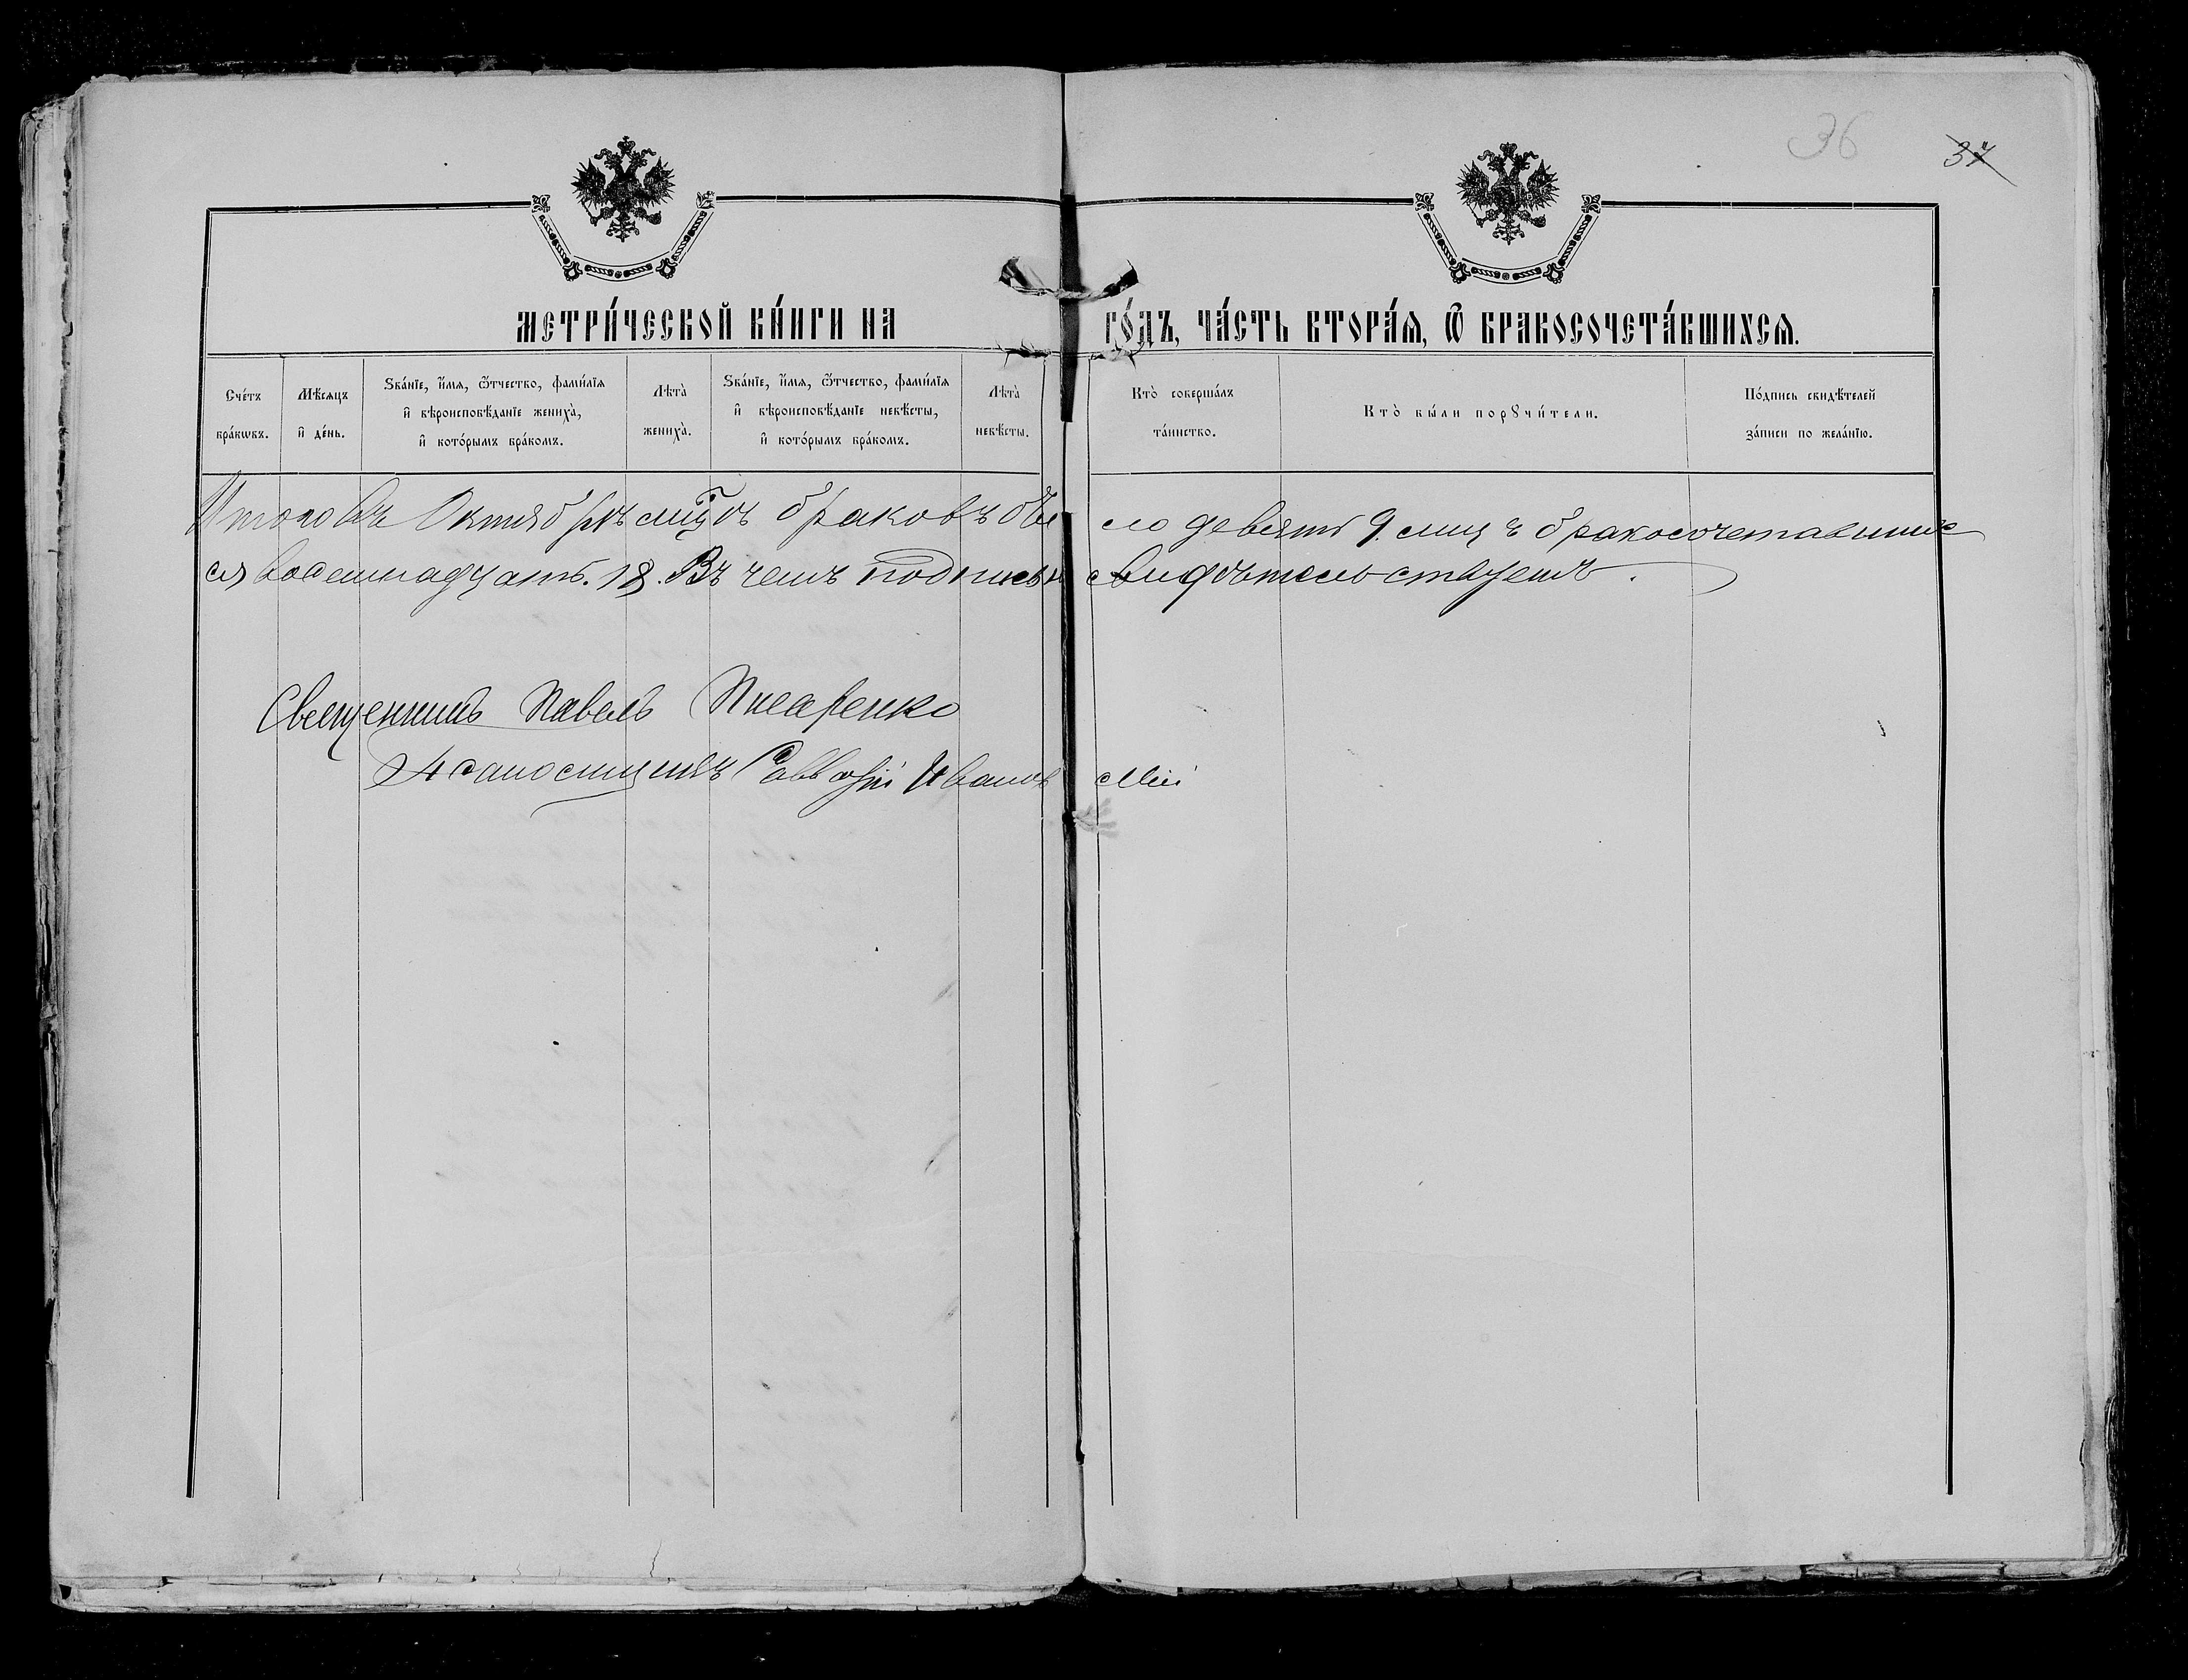 36
37
МЕТРИ́ЧЕСКОЙ КНИ́ГИ НА ГО́ДЪ, ЧА́СТЬ ВТОРА́Я, Ѿ БРАКОСОЧЕТА́ВШИХСЯ.
Сче́тъ бра́кѡвъ.
Мѣ́сяцъ и҆ де́нь.
Зва́нїе, и҆́мя, ѻ҆́тчество, фами́лїя и҆ вѣроисповѣ́данїе жениха̀, и҆ кото́рымъ бра́комъ.
Лѣта̀ жениха̀.
Зва́нїе, и҆́мя, ѻ҆́тчество, фами́лїя и҆ вѣроисповѣ́данїе невѣ́сты, и҆ кото́рымъ бра́комъ.
Лѣта̀ невѣ́сты.
Кто̀ соверша́лъ та́инство.
Кто̀ бы́ли порꙋчи́тели.
По́дпись свидѣ́телей за́писи по жела́нїю.
Итого въ Октябрѣ мцѣ браковъ было девять 9. лицъ бракосочетавших
ся восемнадцать. 18. Въ чемъ подписью свидѣтельствуемъ.
Священникъ Павелъ Писаренко
Псаломщикъ Савватій Ивановскій